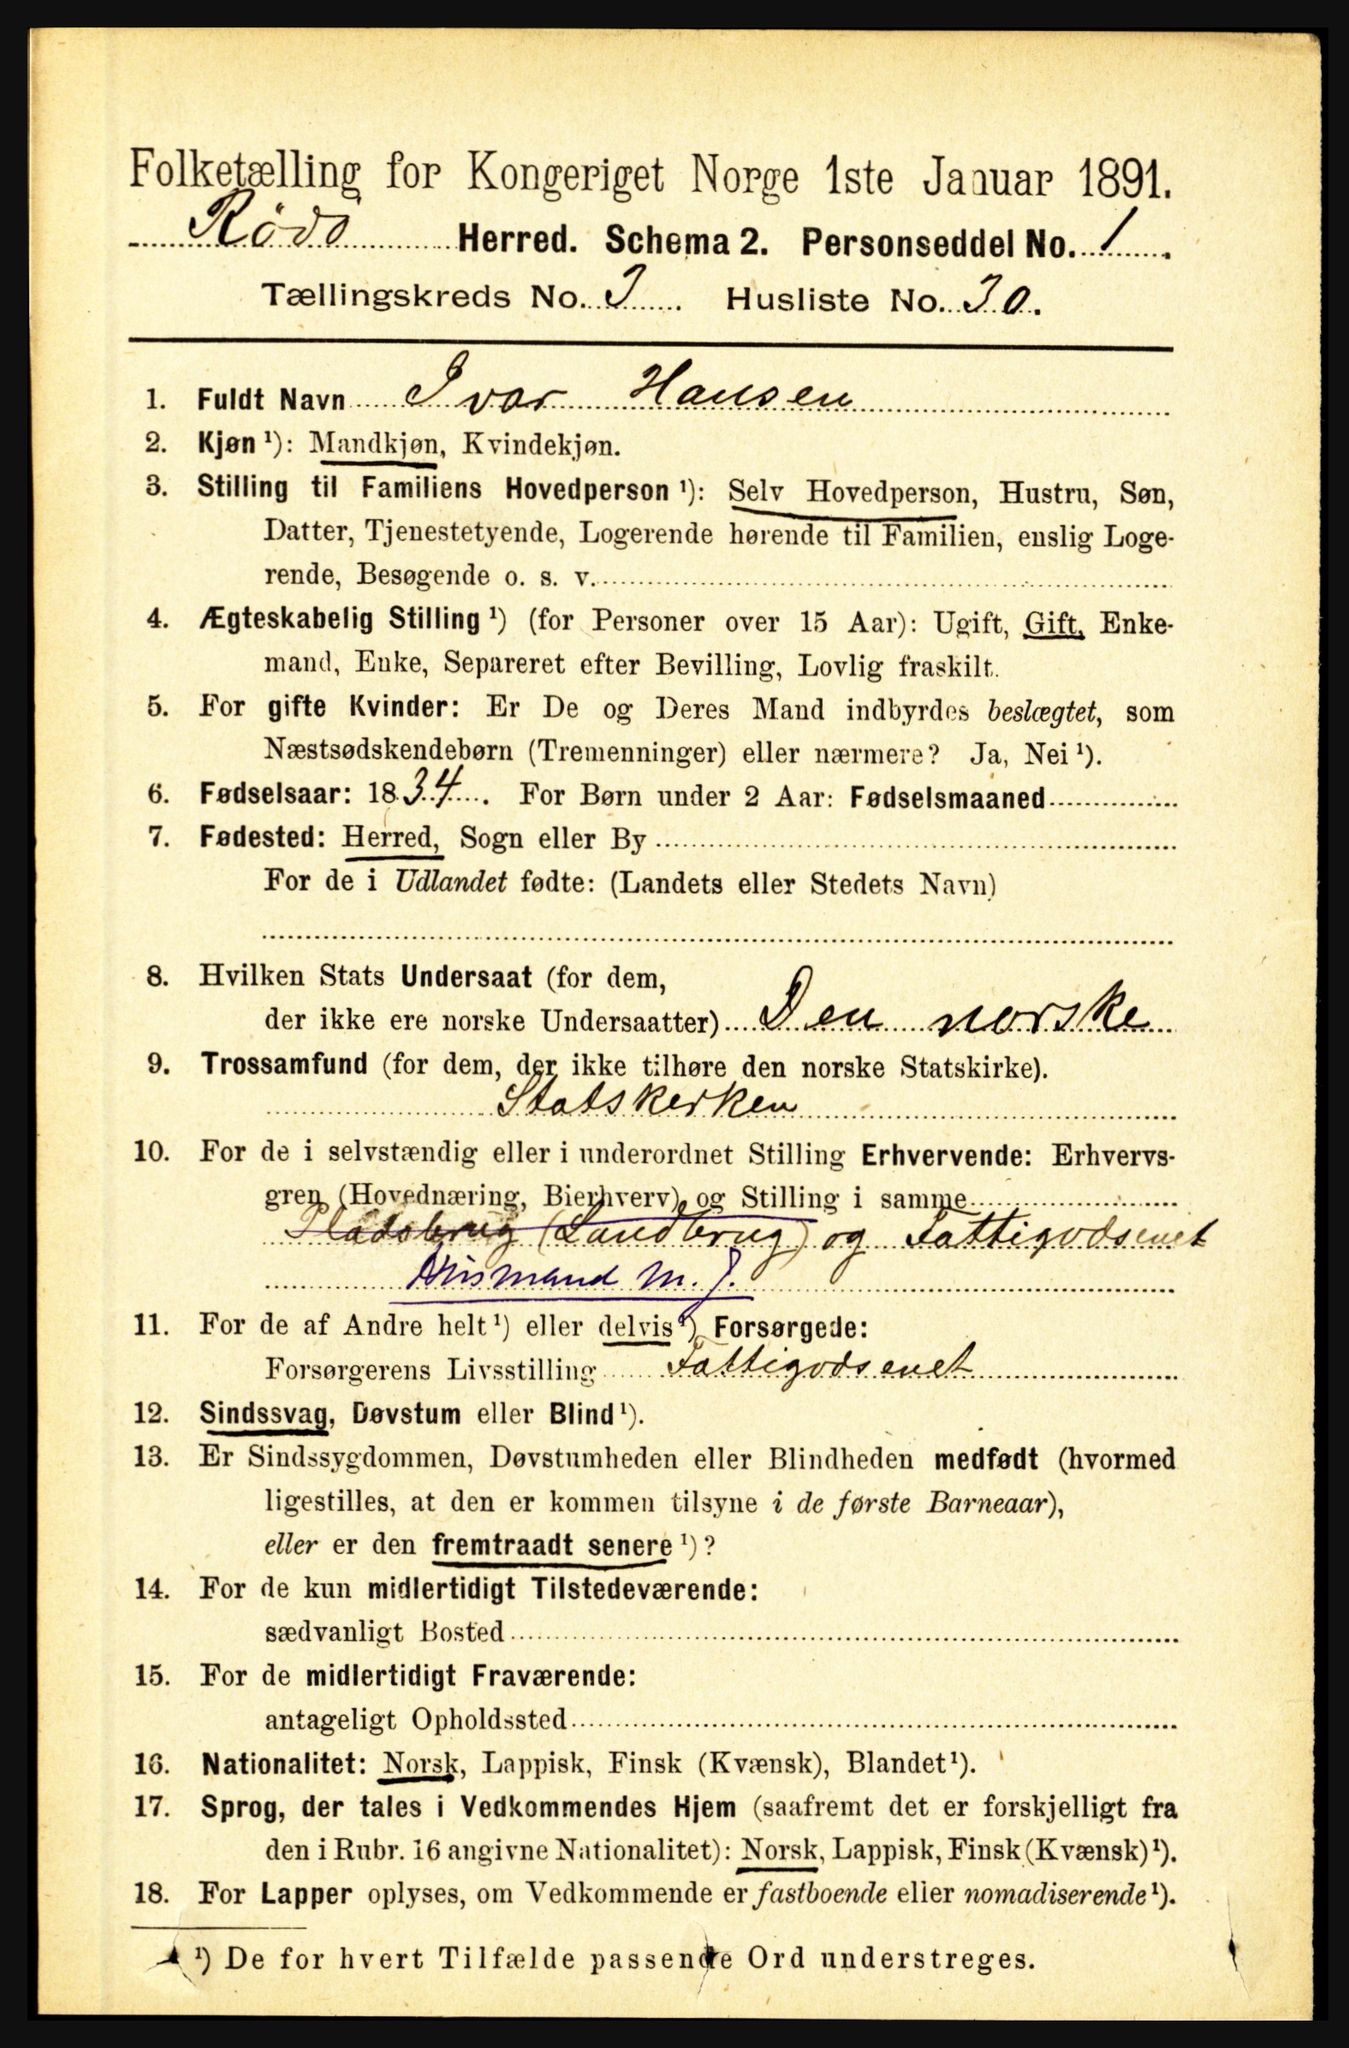 Folketælling for Kongeriget Norge 1ste Januar 1891.
Rødø Herred. Schema 2. Personseddel No. 1.
Tællingskreds No. 3. Husliste No. 30.
1. Fuldt Navn Ivar Hansen
2. Kjøn ¹): Mandkjøn, Kvindekjøn.
3. Stilling til Familiens Hovedperson ¹): Selv Hovedperson, Hustru, Søn,
Datter, Tjenestetyende, Logerende hørende til Familien, enslig Loge-
rende, Besøgende o. s. v.
4. Ægteskabelig Stilling ¹) (for Personer over 15 Aar): Ugift, Gift, Enke-
mand, Enke, Separeret efter Bevilling, Lovlig fraskilt.
5. For gifte Kvinder: Er De og Deres Mand indbyrdes beslægtet, som
Næstsødskendebørn (Tremenninger) eller nærmere? Ja, Nei ¹).
6. Fødselsaar: 1834. For Børn under 2 Aar: Fødselsmaaned
7. Fødested: Herred, Sogn eller By
For de i Udlandet fødte: (Landets eller Stedets Navn)
8. Hvilken Stats Undersaat (for dem,
der ikke ere norske Undersaatter) Den norske
9. Trossamfund (for dem, der ikke tilhøre den norske Statskirke).
Statskerken
10. For de i selvstændig eller i underordnet Stilling Erhvervende: Erhvervs-
gren (Hovednæring, Bierhverv) og Stilling i samme
Pladsbrug (Landbrug) og Fattigvdsenet
Husmand m. J.
11. For de af Andre helt ¹) eller delvis ¹) Forsørgede:
Forsørgerens Livsstilling Fattigvdsenet
12. Sindssvag, Døvstum eller Blind ¹).
13. Er Sindssygdommen, Døvstumheden eller Blindheden medfødt (hvormed
ligestilles, at den er kommen tilsyne i de første Barneaar),
eller er den fremtraadt senere ¹)?
14. For de kun midlertidigt Tilstedeværende:
sædvanligt Bosted
15. For de midlertidigt Fraværende:
antageligt Opholdssted
16. Nationalitet: Norsk, Lappisk, Finsk (Kvænsk), Blandet ¹).
17. Sprog, der tales i Vedkommendes Hjem (saafremt det er forskjelligt fra
den i Rubr. 16 angivne Nationalitet): Norsk, Lappisk, Finsk (Kvænsk) ¹).
18. For Lapper oplyses, om Vedkommende er fastboende eller nomadiserende ¹).
¹) De for hvert Tilfælde passende Ord understreges.